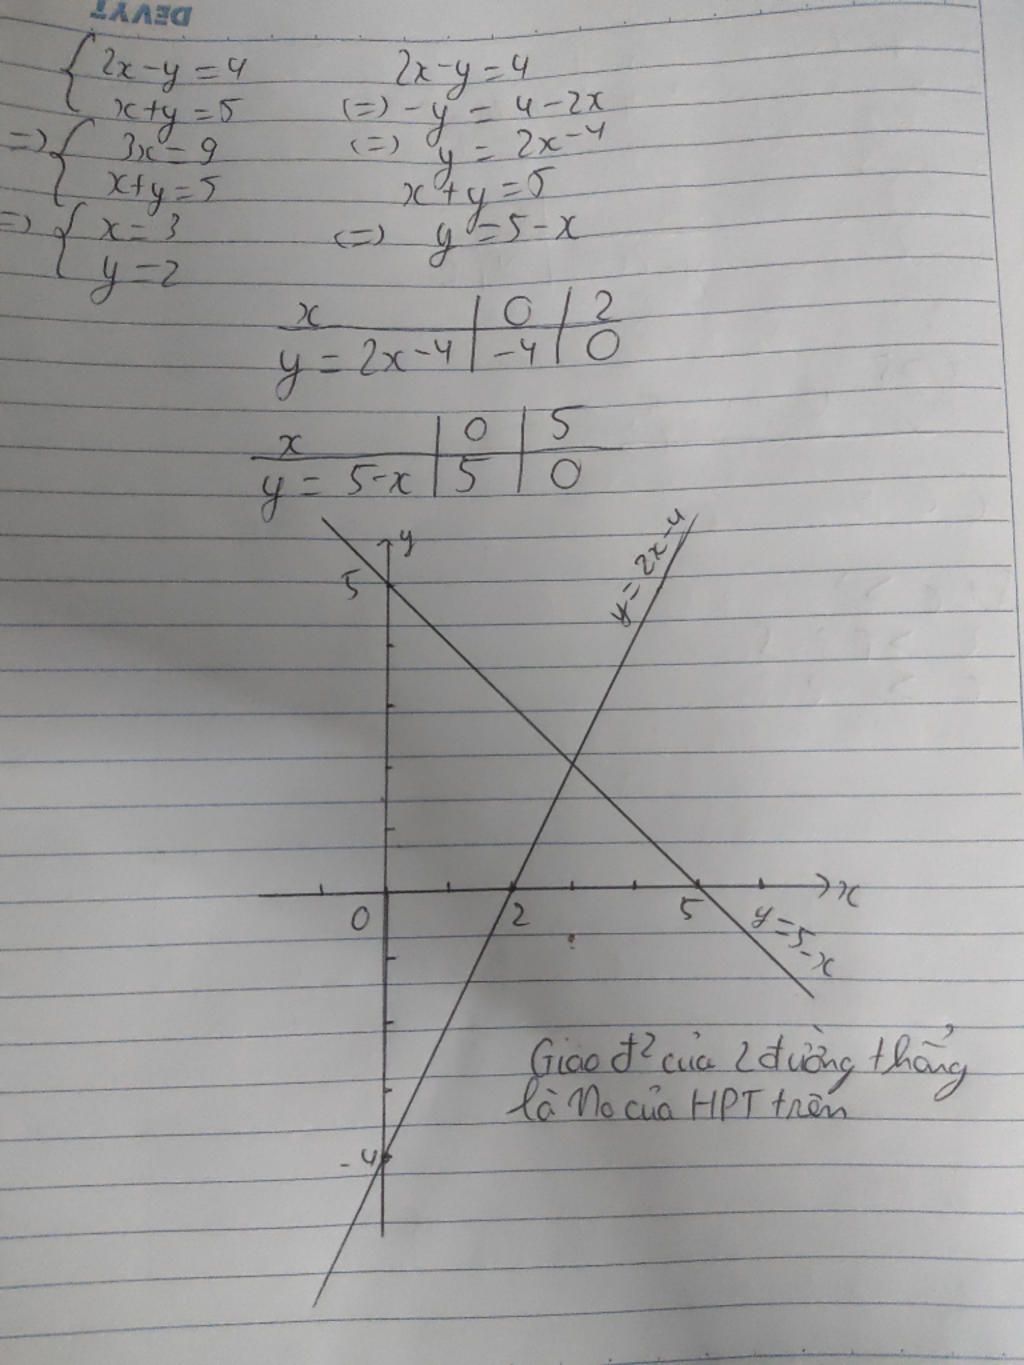 DEVYT
2x-y=4
x+y=5
=> 3x=9
x+y=5
=> x=3
y=2
2x-y=4
(=) -y = 4-2x
(=) y = 2x-4
x+y=5
(=) y=5-x
x | 0 | 2
y = 2x-4 | -4 | 0
x | 0 | 5
y = 5-x | 5 | 0
y
5
y = 2x-4
0
2
5
x
y=5-x
-4
Giao đ² của 2 đường thẳng
là No của HPT trên